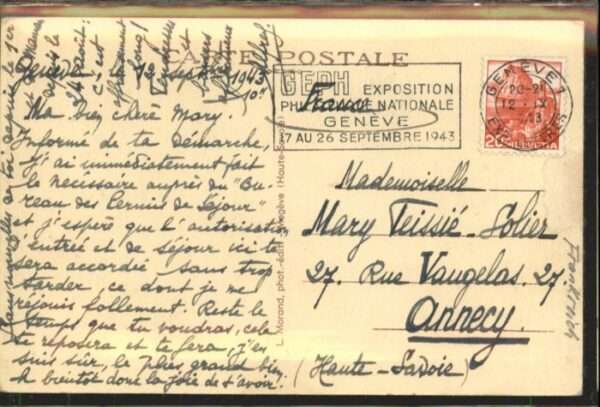 CARTE POSTALE
Genève, 12 septembre 1943
Ma bien chère Mary.
Informé de ta démarche,
j'ai immédiatement fait
le nécessaire auprès du "Bu-
reau des Permis de Séjour"
et j'espère que l'autorisation
d'entrée et de séjour ici te
sera accordée sans trop
tarder, ce dont je me
réjouis follement. Reste le
temps que tu voudras, cela
te reposera et te fera, j'en
suis sûr, le plus grand bien
A bientôt donc la joie de t'avoir.
Sans nouvelles de toi depuis le 1er
24 août:
c'est
long!
Tendresses
et
GEPH EXPOSITION
PHILATÉLIQUE NATIONALE
GENÈVE
17 AU 26 SEPTEMBRE 1943
France
GENÈVE 1
20-21
12 IX
43
20 HELVETIA
L. Morand, phot-édit. Megève (Haute-Savoie)
Mademoiselle
Mary Teissié-Solier
27. Rue Vaugelas. 27
Annecy.
(Haute-Savoie)